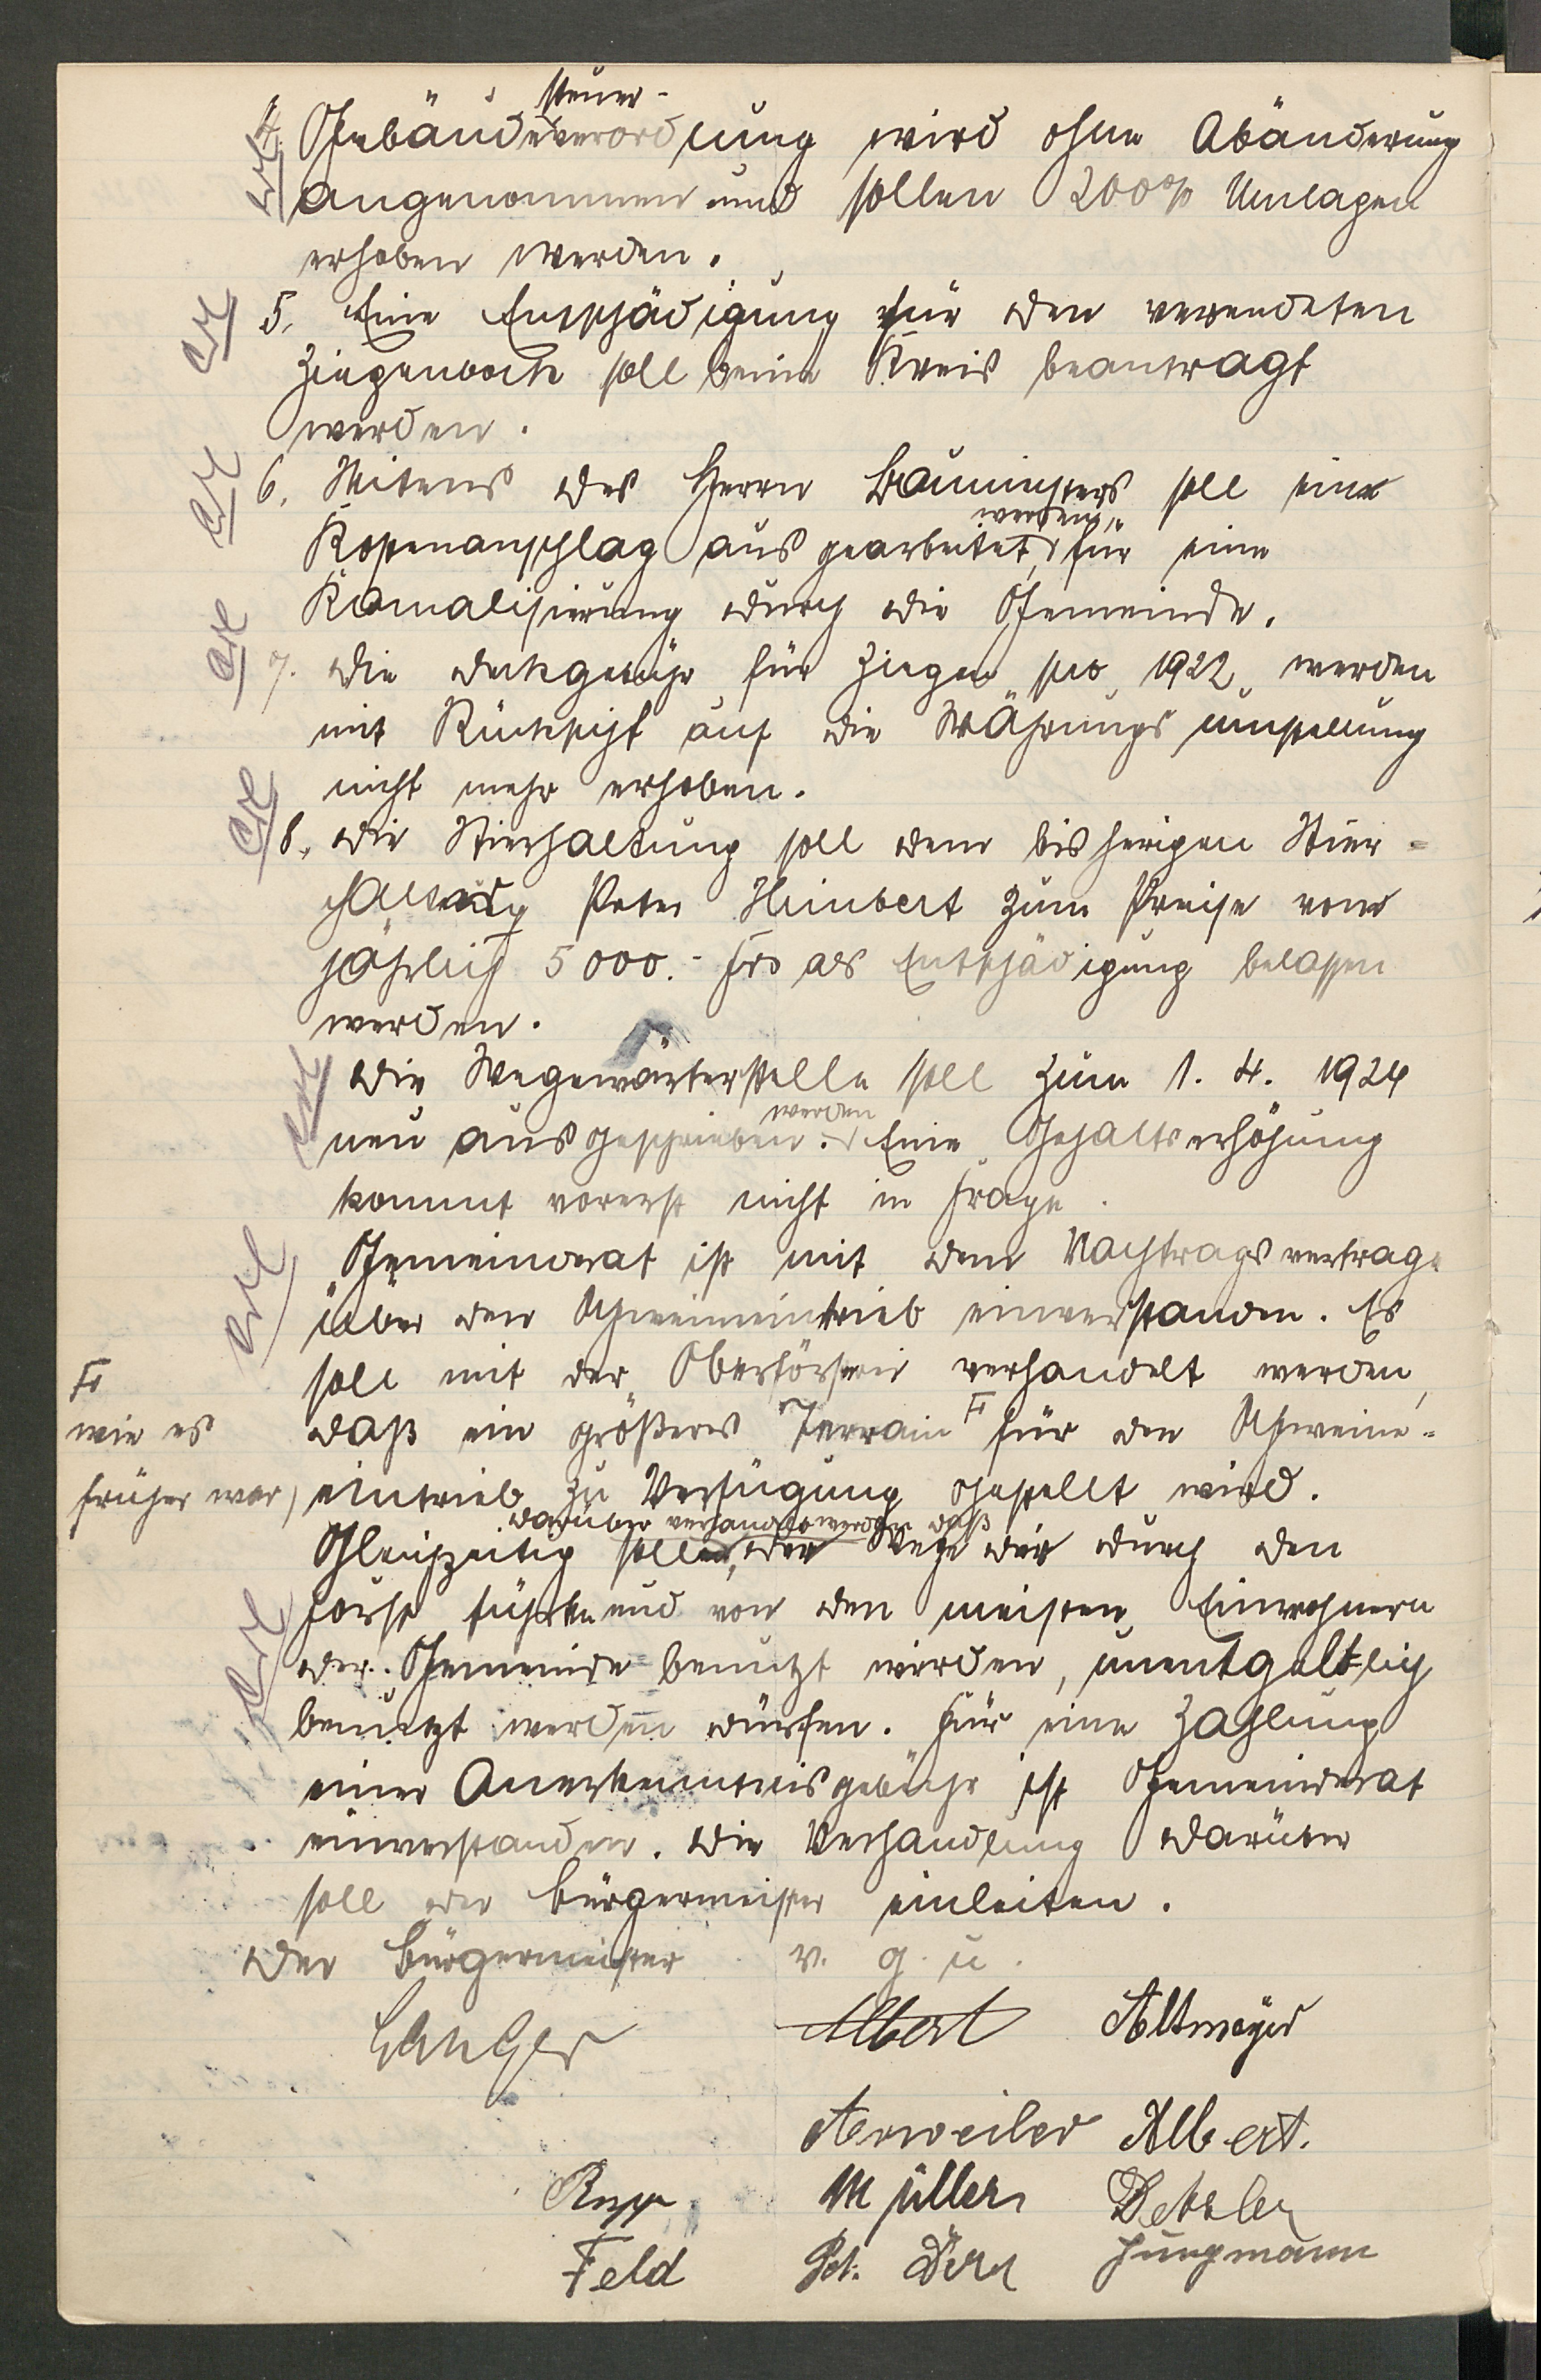 steuer-
4. Gebäudeverordnung wird ohne Abänderung
angenommen und sollen 200% Umlagen
erhoben werden.
5. Eine Entschädigung für den verendeten
Ziegenbock soll beim Kreis beantragt
werden.
6. Seitens des Herrn Baumeisters soll ein
werden
Kostenanschlag ausgearbeitet, für eine
Kanalisierung durch die Gemeinde.
7. Die Deckgebühr für Ziegen pro 1922 werden
mit Rücksicht auf die Währungsumstellung
nicht mehr erhoben.
8. Die Stierhaltung soll dem bisherigen Stier-
Peter Himbert zum Preise von
jährlich 5000.- Frs als Entschädigung belassen
werden.
Die Wegewärterstelle soll zum 1. 4. 1924
werden
neu ausgeschrieben. Eine Gehaltserhöhung
kommt vorerst nicht in Frage.
Gemeinderat ist mit dem Nachtragsvertrage
über den Schweineintrieb einverstanden. Es
soll mit der Oberförsterei verhandelt werden,
daß ein größeres Terrain F für den Schweine-
F
wie es
früher war,
eintrieb zu Verfügung gestellt wird.
darüber verhandelt werden daß
Gleichzeitig soll, der Wege die durch den
Forst führen und von den meisten Einwohnern
der Gemeinde benutzt werden, unentgeltlich
benutzt werden dürfen. Für eine Zahlung
einer Anerkenntnisgebühr ist Gemeinderat
einverstanden. Die Verhandlung darüber
soll der Bürgermeister einleiten.
Der Bürgermeister v. g. u.
Albert Altmeyer
Arweiler Albert.
Müller
Feld Pet. Jungmann